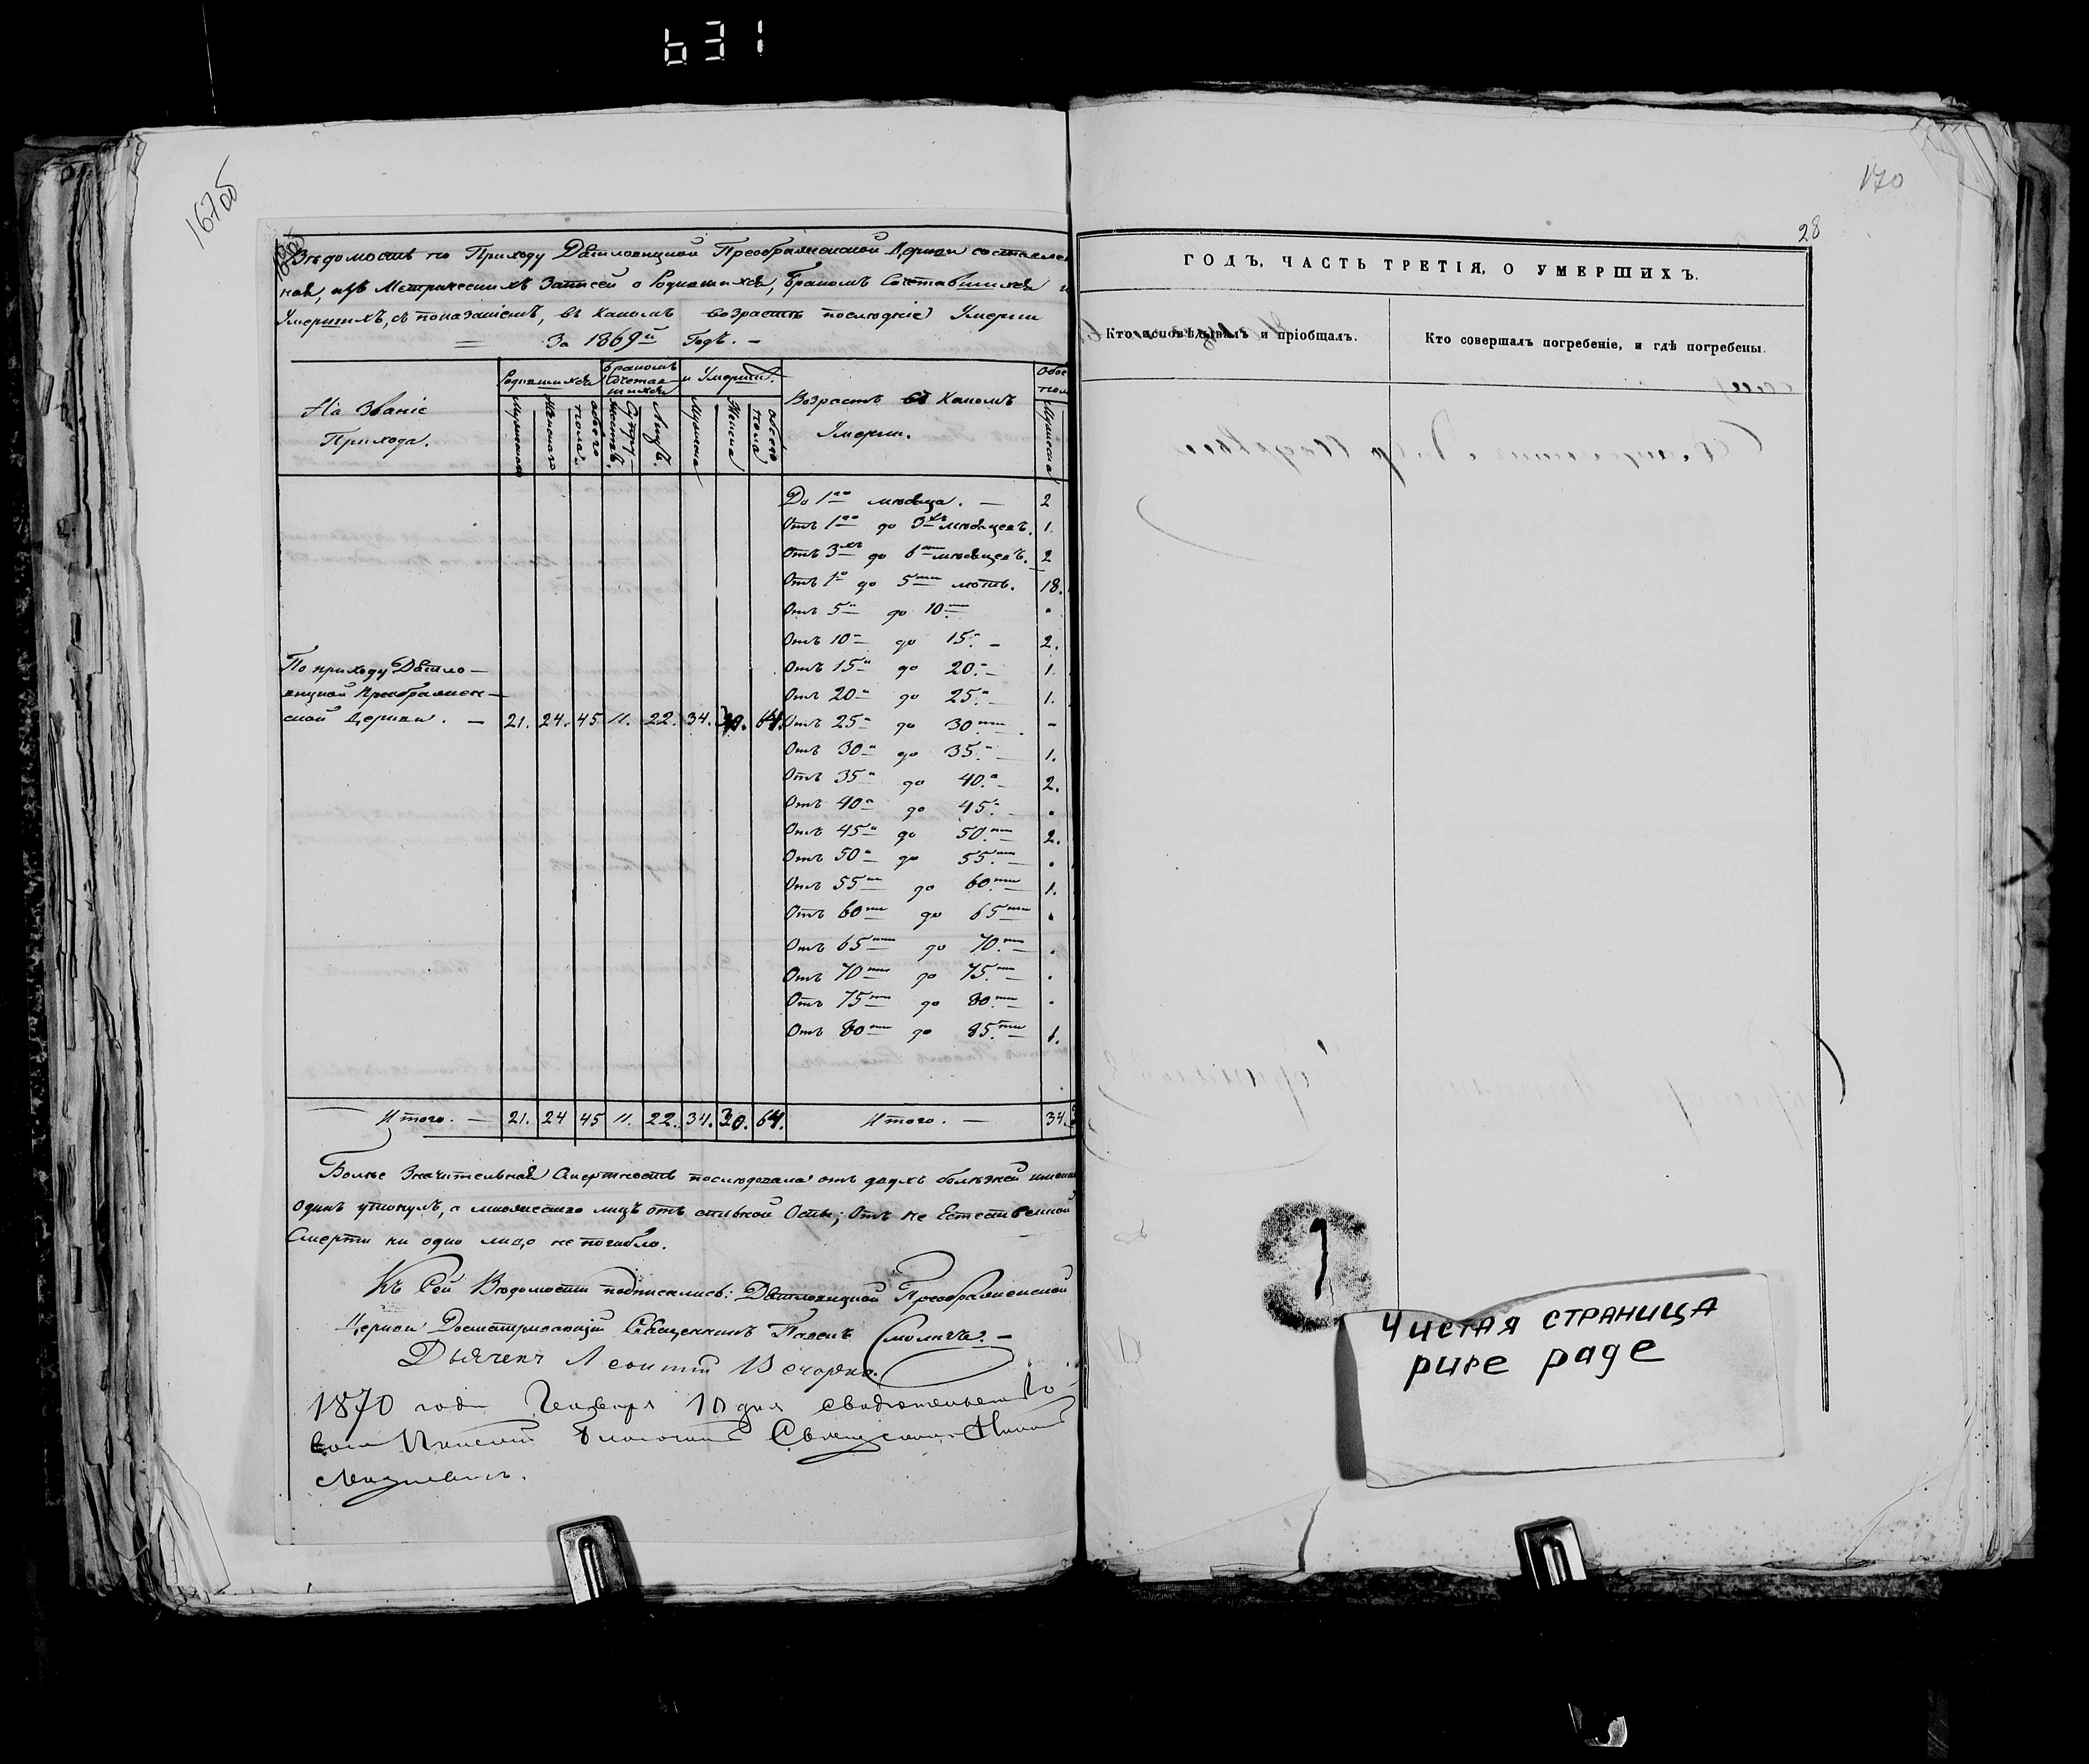 631
167об
170
28
Вѣдомость по Приходу Дѣтловицкой Преображенской Церкви составлен
ная, изъ Метрическихъ Записей о Родившихся, Бракомъ Сочетавшихся и
Умершихъ, съ показаніемъ, въ какомъ возрастѣ послѣдніе Умерли
За 1869й Годъ. –
На Званіе Прихода.
Родившихся
Бракомъ Сочетавшихся
и Умерш.
Возрастъ въ Какомъ Умерли.
Обое пол
Мужескаго
Женскаго
обоего пола
Супружествъ.
Лицъ.
Мужеска
Женска
обоего пола
Мужеска
До 1го мѣсяца. – 2
Отъ 1го до 3хъ мѣсяцевъ. 1.
Отъ 3хъ до 6ти мѣсяцевъ. 2
Отъ 1о до 5ти лѣтъ. 18.
Отъ 5и до 10ти •
Отъ 10и до 15и – 2.
Отъ 15и до 20и – 1.
Отъ 20и до 25и – 1.
Отъ 25и до 30ти -
Отъ 30и до 35и – 1.
Отъ 35и до 40а – 2.
Отъ 40а до 45и – •
Отъ 45и до 50ти 2.
Отъ 50и до 55ти •
Отъ 55ти до 60ти 1.
Отъ 60ти до 65ти •
Отъ 65ти до 70ти •
Отъ 70ти до 75ти •
Отъ 75ти до 80ти •
Отъ 80ти до 85ти 1.
По приходу Дѣтло–
вицкой Преображен–
ской Церкви. – 21. 24. 45 11. 22. 34. 30. 64.
Итого. – 21. 24 45 11. 22. 34. 30. 64. Итого. – 34.
Болѣе Значительная Смертность послѣдовала отъ двухъ болѣзней
одинъ утонулъ, а множество лицъ отъ сильной Оспы; Отъ не Естественной
Смерти ни одно лицо не погибло.
Къ Сей Вѣдомости подписались: Дѣтловицкой Преображенской
Церкви Досматривающій Священникъ Павелъ Смоличъ. –
Дьячекъ Леонтій
1870 года Генваря 10 дня свидѣтельст
Священникъ
ГОДЪ, ЧАСТЬ ТРЕТІЯ, О УМЕРШИХЪ.
Кто исповѣдывалъ и пріобщалъ.
Кто совершалъ погребеніе, и гдѣ погребены.
1
ЧИСТАЯ СТРАНИЦА
pure page